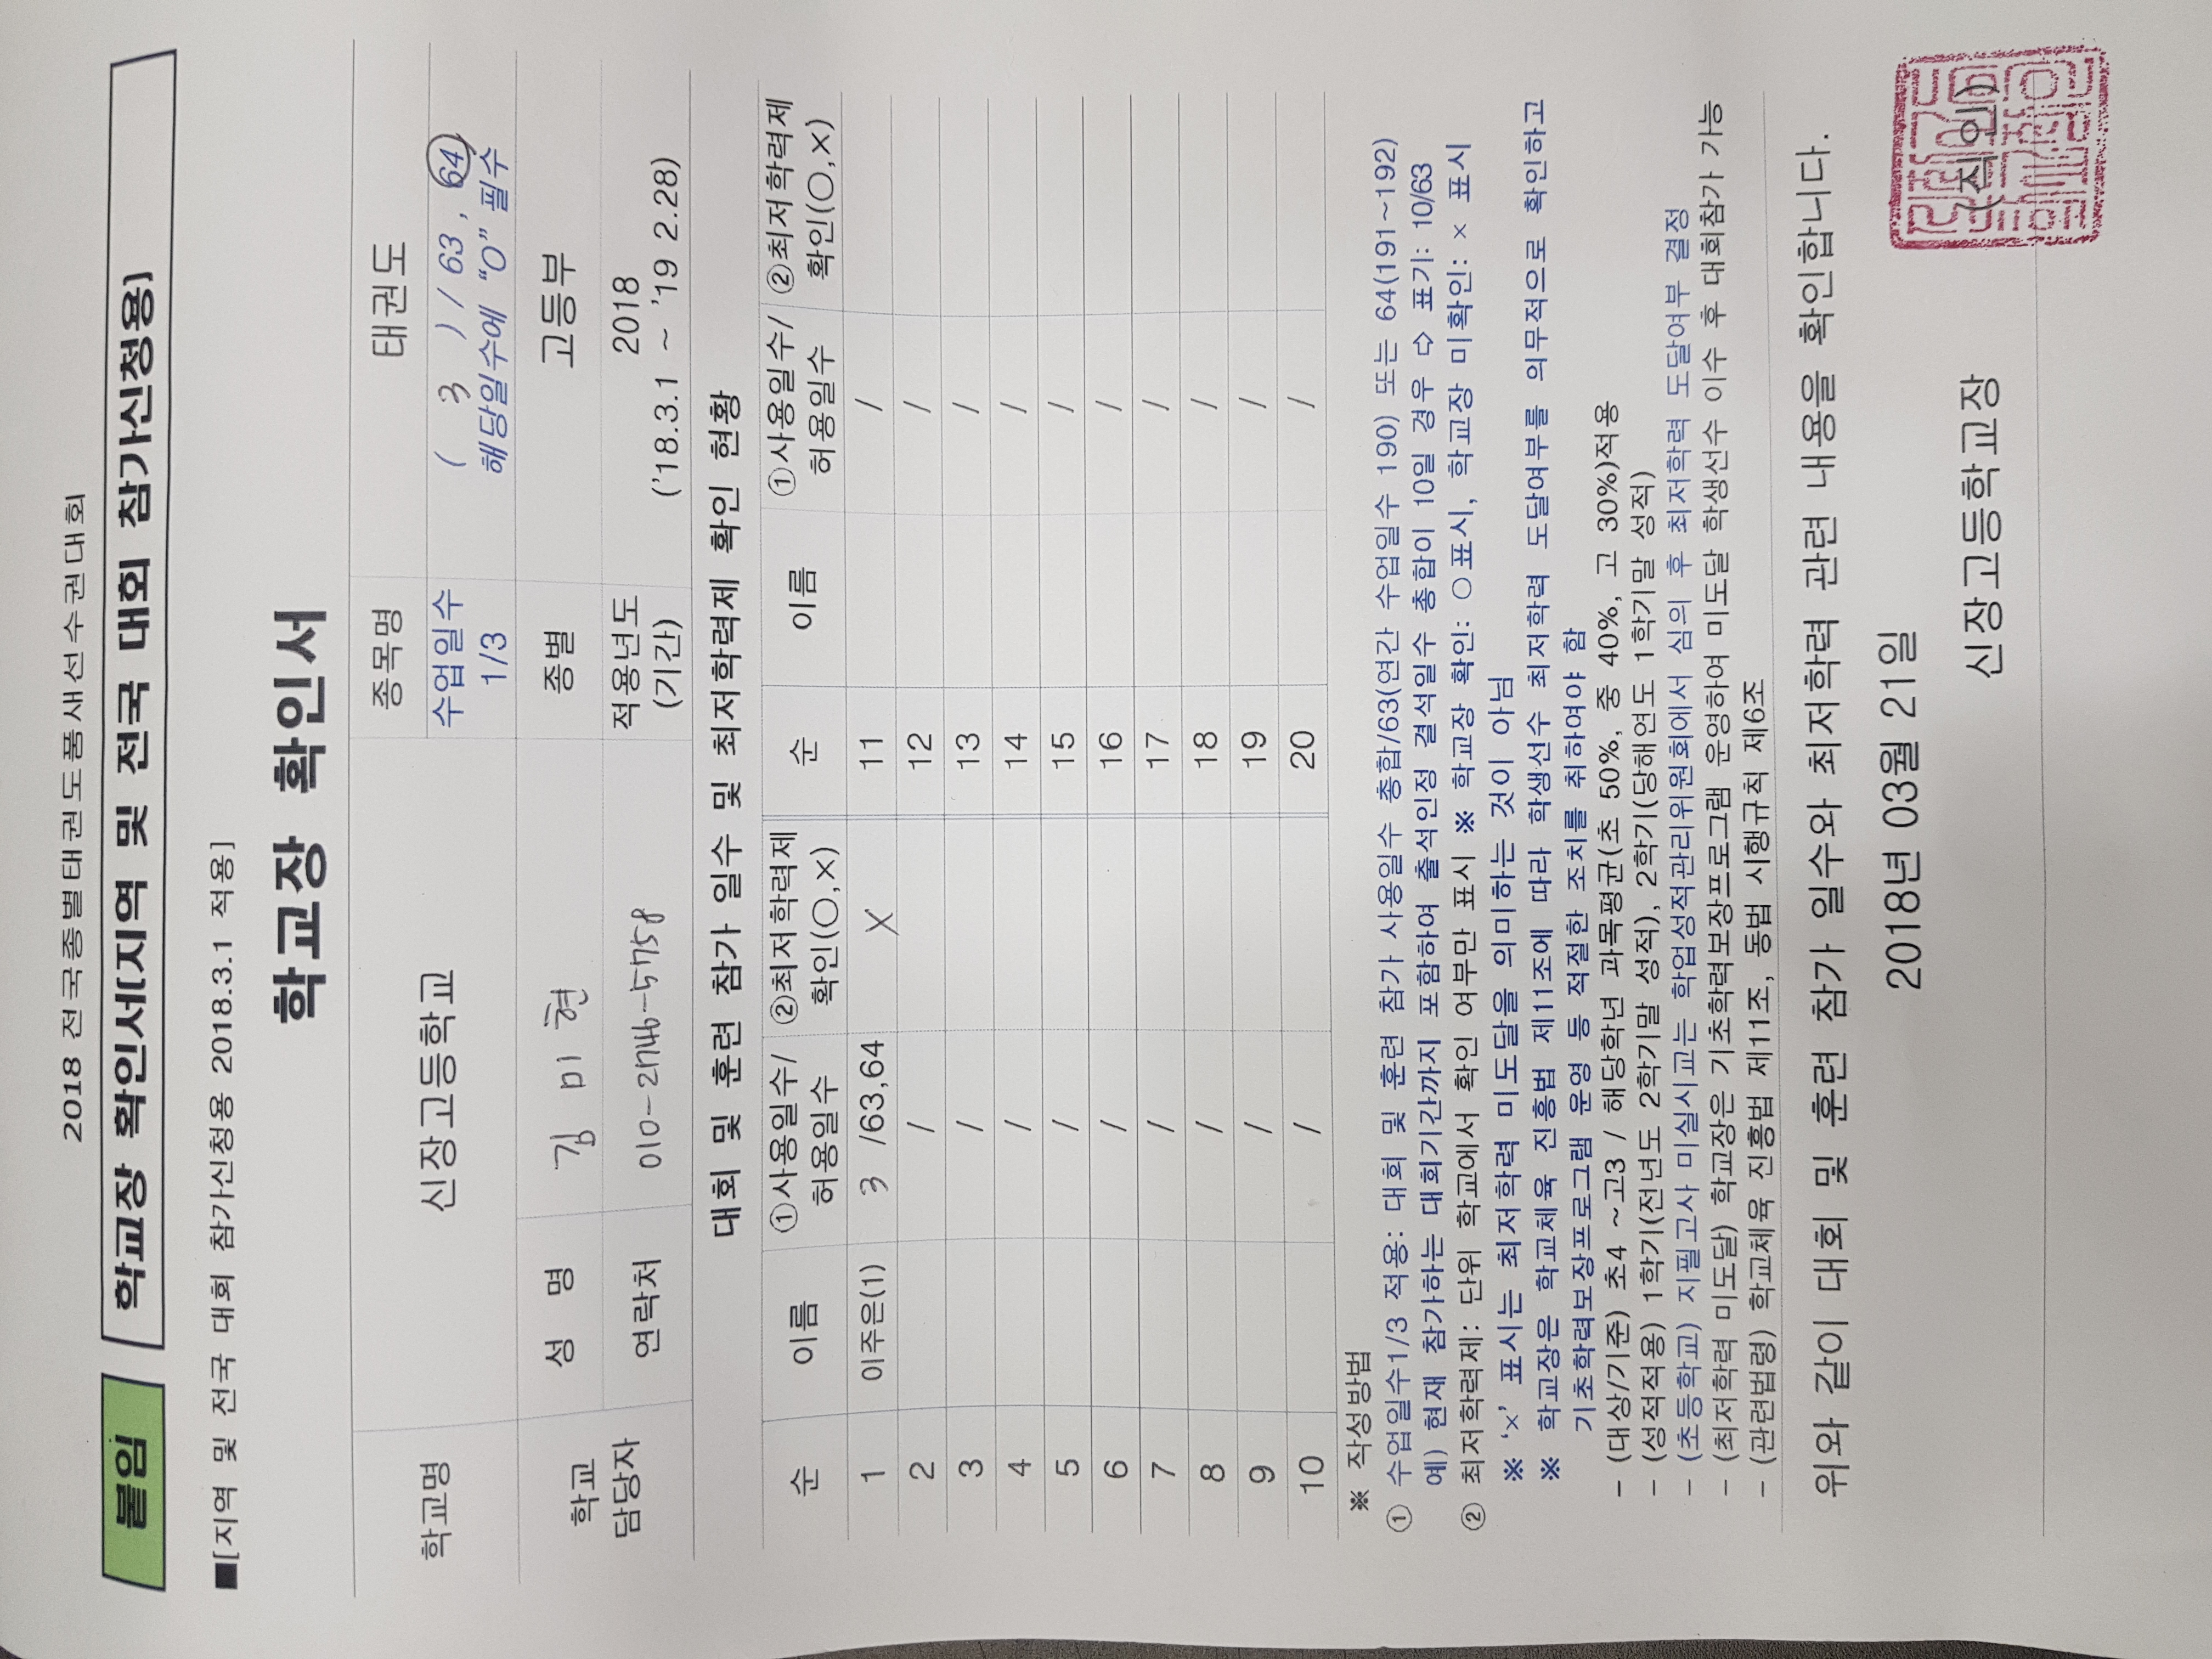 2018 전국종별태권도품새선수권대회
붙임 학교장 확인서(지역 및 전국 대회 참가신청용)
■[지역 및 전국 대회 참가신청용 2018.3.1 적용]
학교장 확인서
학교명 신장고등학교 종목명 태권도
수업일수 1/3 ( 3 ) / 63 , 64
해당일수에 “O” 필수
학교 담당자 성 명 김 미 현 종별 고등부
연락처 적용년도 (기간) 2018
('18.3.1 ~ '19 2.28)
대회 및 훈련 참가 일수 및 최저학력제 확인 현황
순 이름 ①사용일수/허용일수 ②최저학력제 확인(○,×) 순 이름 ①사용일수/허용일수 ②최저학력제 확인(○,×)
1 이주은(1) 3 /63,64 X 11 /
2 / 12 /
3 / 13 /
4 / 14 /
5 / 15 /
6 / 16 /
7 / 17 /
8 / 18 /
9 / 19 /
10 / 20 /
※ 작성방법
① 수업일수1/3 적용: 대회 및 훈련 참가 사용일수 총합/63(연간 수업일수 190) 또는 64(191~192)
예) 현재 참가하는 대회기간까지 포함하여 출석인정 결석일수 총합이 10일 경우 ⇨ 표기: 10/63
② 최저학력제: 단위 학교에서 확인 여부만 표시 ※ 학교장 확인: ○표시, 학교장 미확인: × 표시
※ ‘×’ 표시는 최저학력 미도달을 의미하는 것이 아님
※ 학교장은 학교체육 진흥법 제11조에 따라 학생선수 최저학력 도달여부를 의무적으로 확인하고
기초학력보장프로그램 운영 등 적절한 조치를 취하여야 함
- (대상/기준) 초4 ~고3 / 해당학년 과목평균(초 50%, 중 40%, 고 30%)적용
- (성적적용) 1학기(전년도 2학기말 성적), 2학기(당해연도 1학기말 성적)
- (초등학교) 지필고사 미실시교는 학업성적관리위원회에서 심의 후 최저학력 도달여부 결정
- (최저학력 미도달) 학교장은 기초학력보장프로그램 운영하여 미도달 학생선수 이수 후 대회참가 가능
- (관련법령) 학교체육 진흥법 제11조, 동법 시행규칙 제6조
위와 같이 대회 및 훈련 참가 일수와 최저학력 관련 내용을 확인합니다.
2018년 03월 21일
신장고등학교장 (직인)